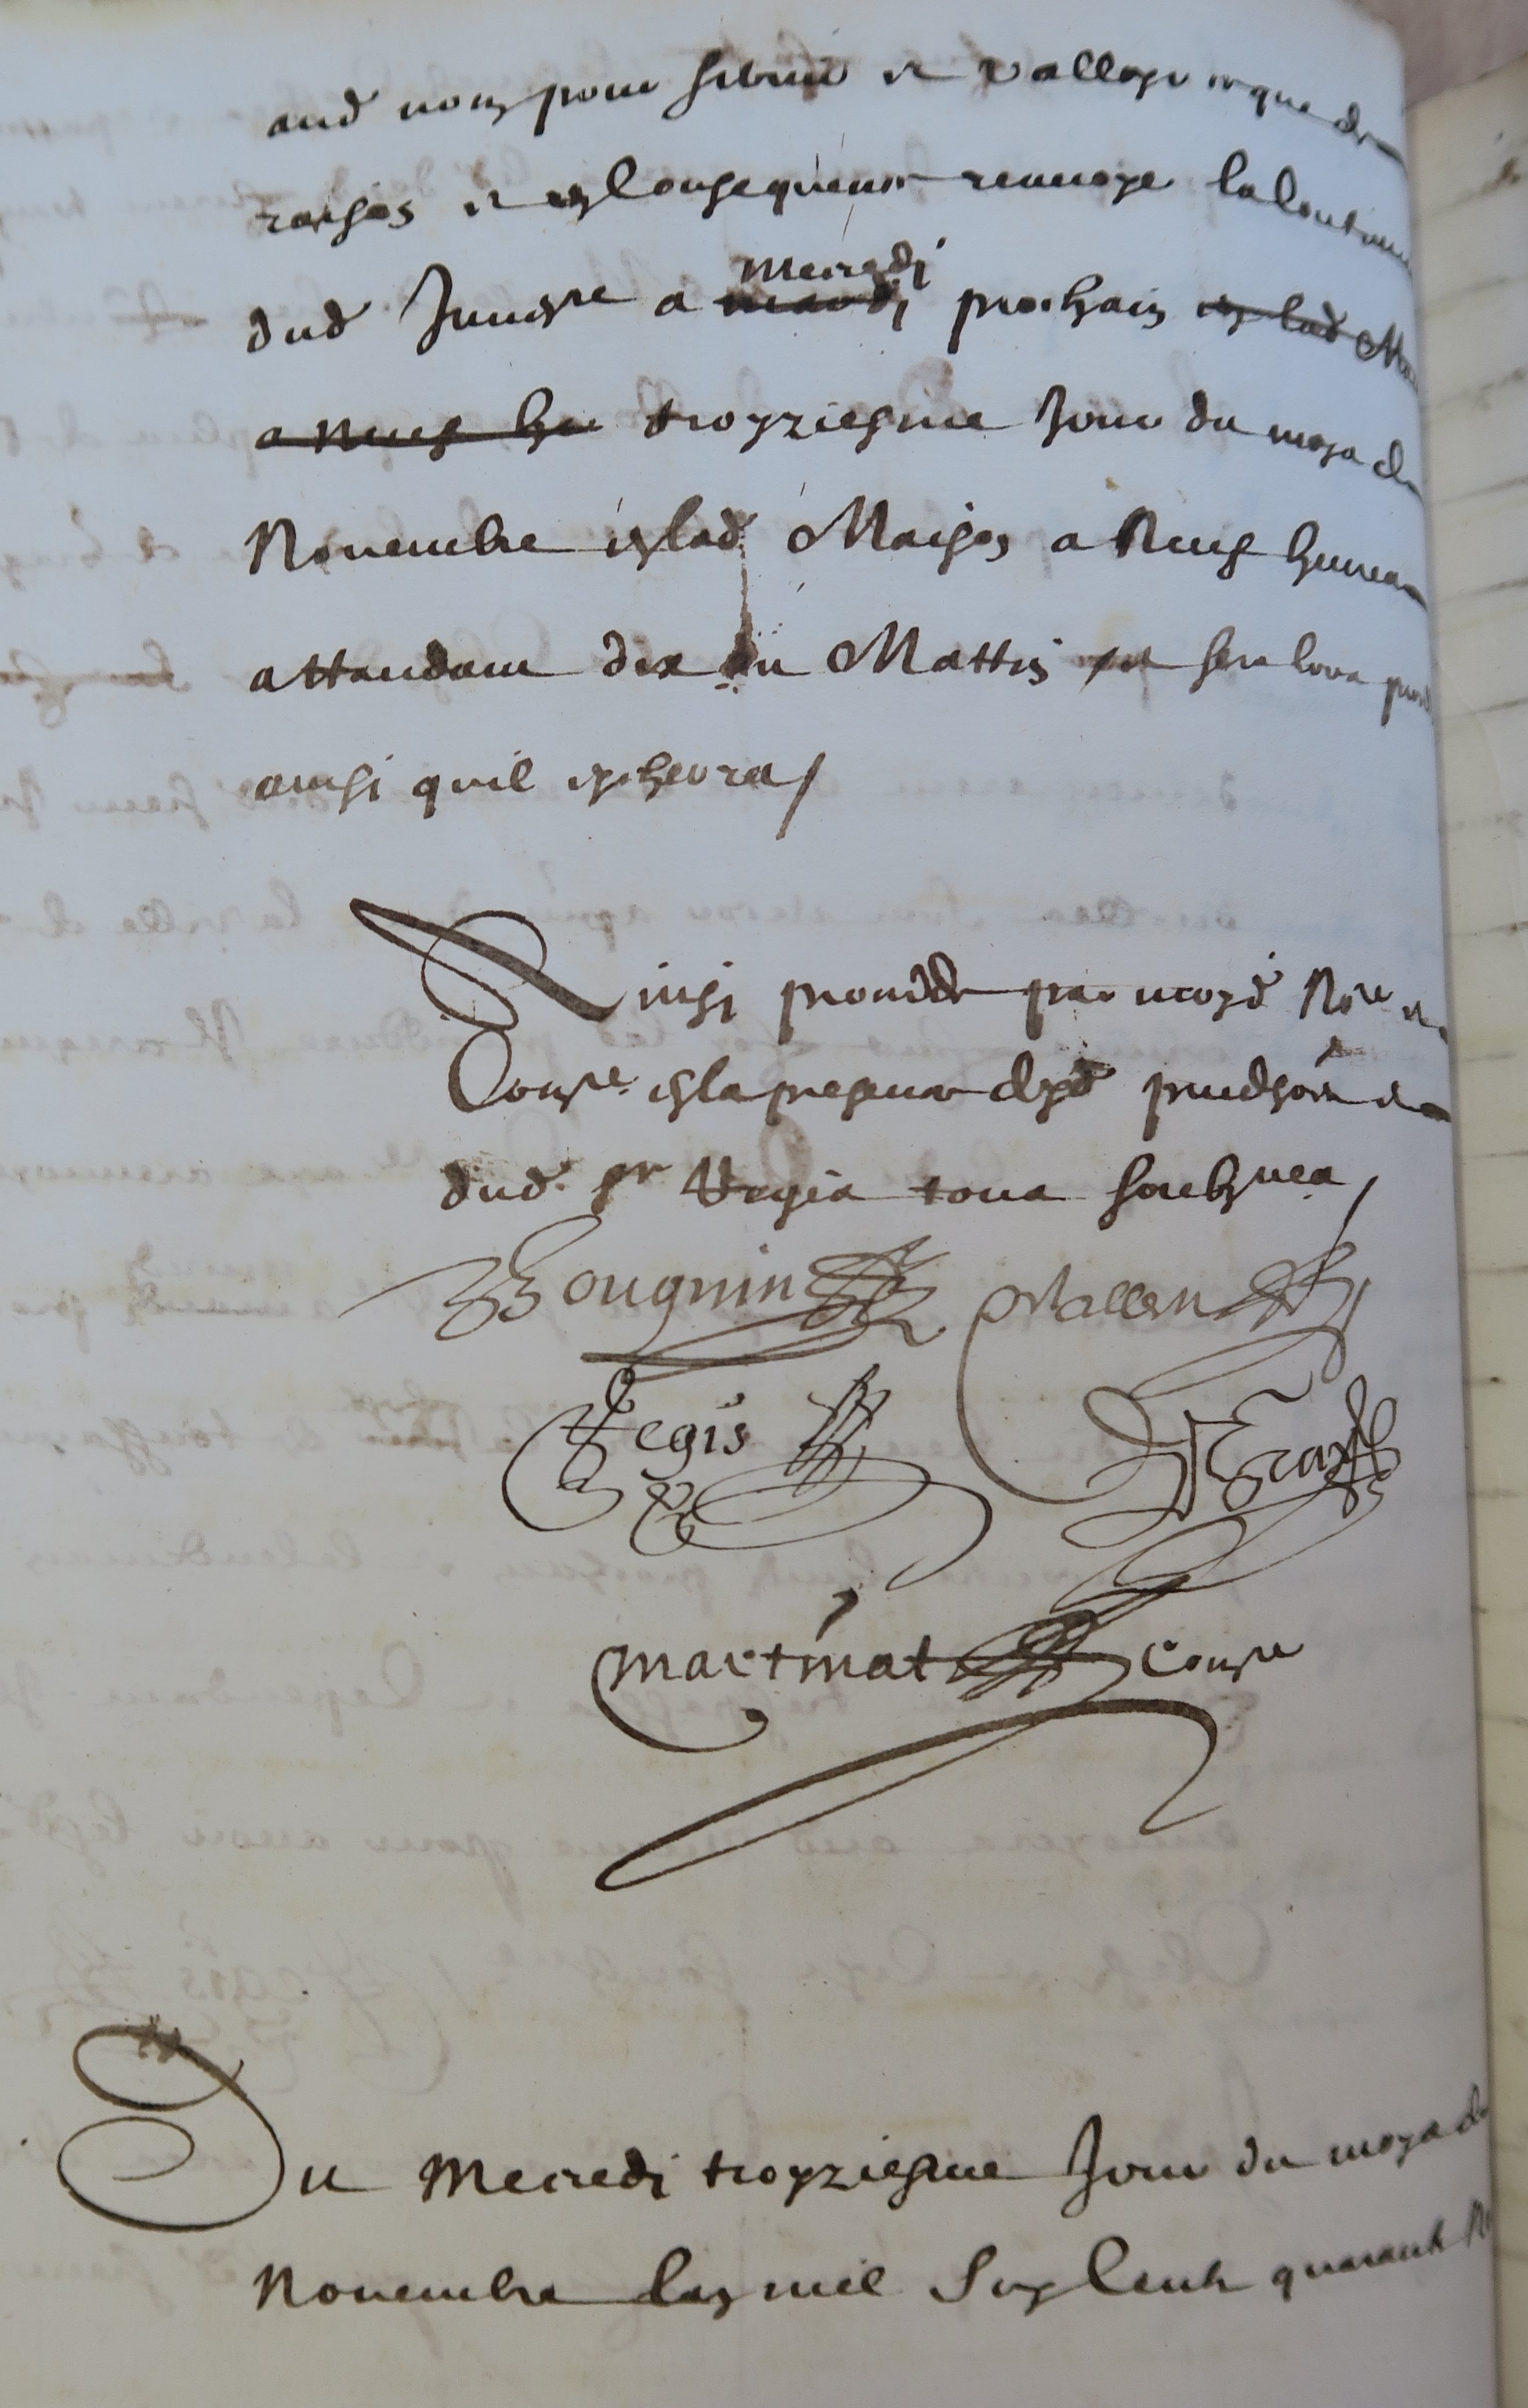 aud nom pour servir et valloyr ce que de
raison et en consequence renvoye la continu
dud Inven.re a mardi mecredi prochain en lad Mai
a neuf heu troyziesme Jour du moys de
Novembre en lad Maison a Neuf heures
attandant dix du Mattin et sera lors proced
ainsi quil escherra /
Ainsi procede par moyd No.re et
Com.re en la presence desd preudhom et
dud s.r Regis tous soubznes /
Bougnin Mallen
Regis
Martinat Com.re
Du Mecredi troyziesme Jour du moys de
Novembre lan mil Six Cents quarante N